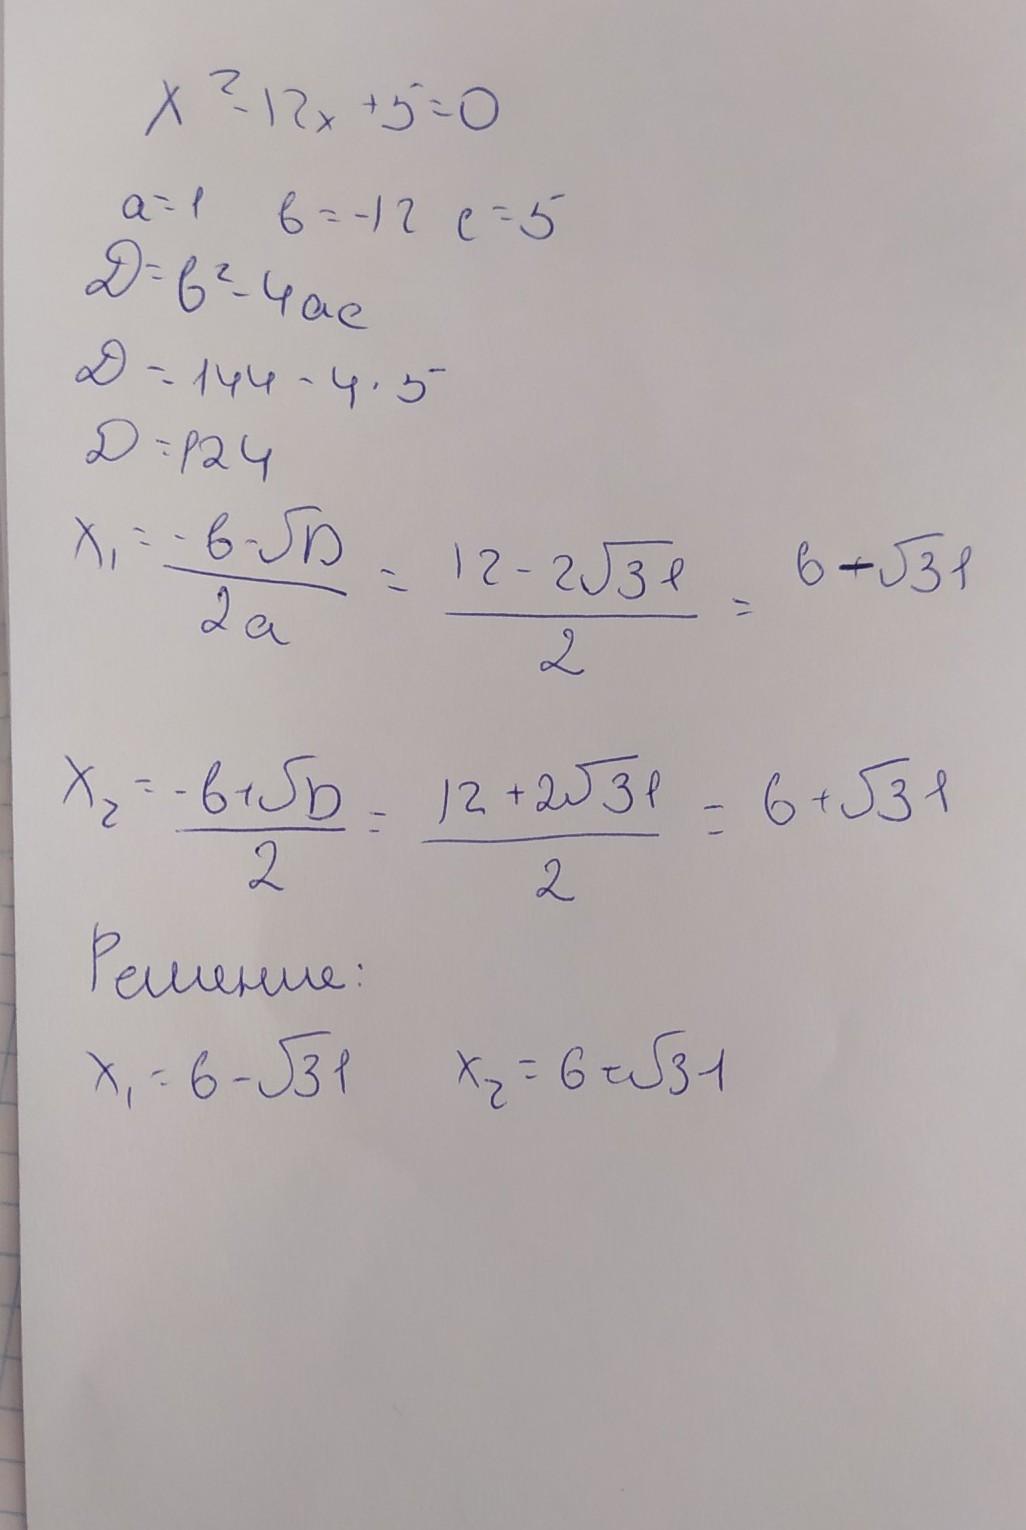 x² - 12x + 5 = 0
a = 1 в = -12 c = 5
D = в² - 4ac
D = 144 - 4 · 5
D = 124
x₁ = (-в - √D) / 2a = (12 - 2√31) / 2 = 6 - √31
x₂ = (-в + √D) / 2 = (12 + 2√31) / 2 = 6 + √31
Решение:
x₁ = 6 - √31 x₂ = 6 + √31